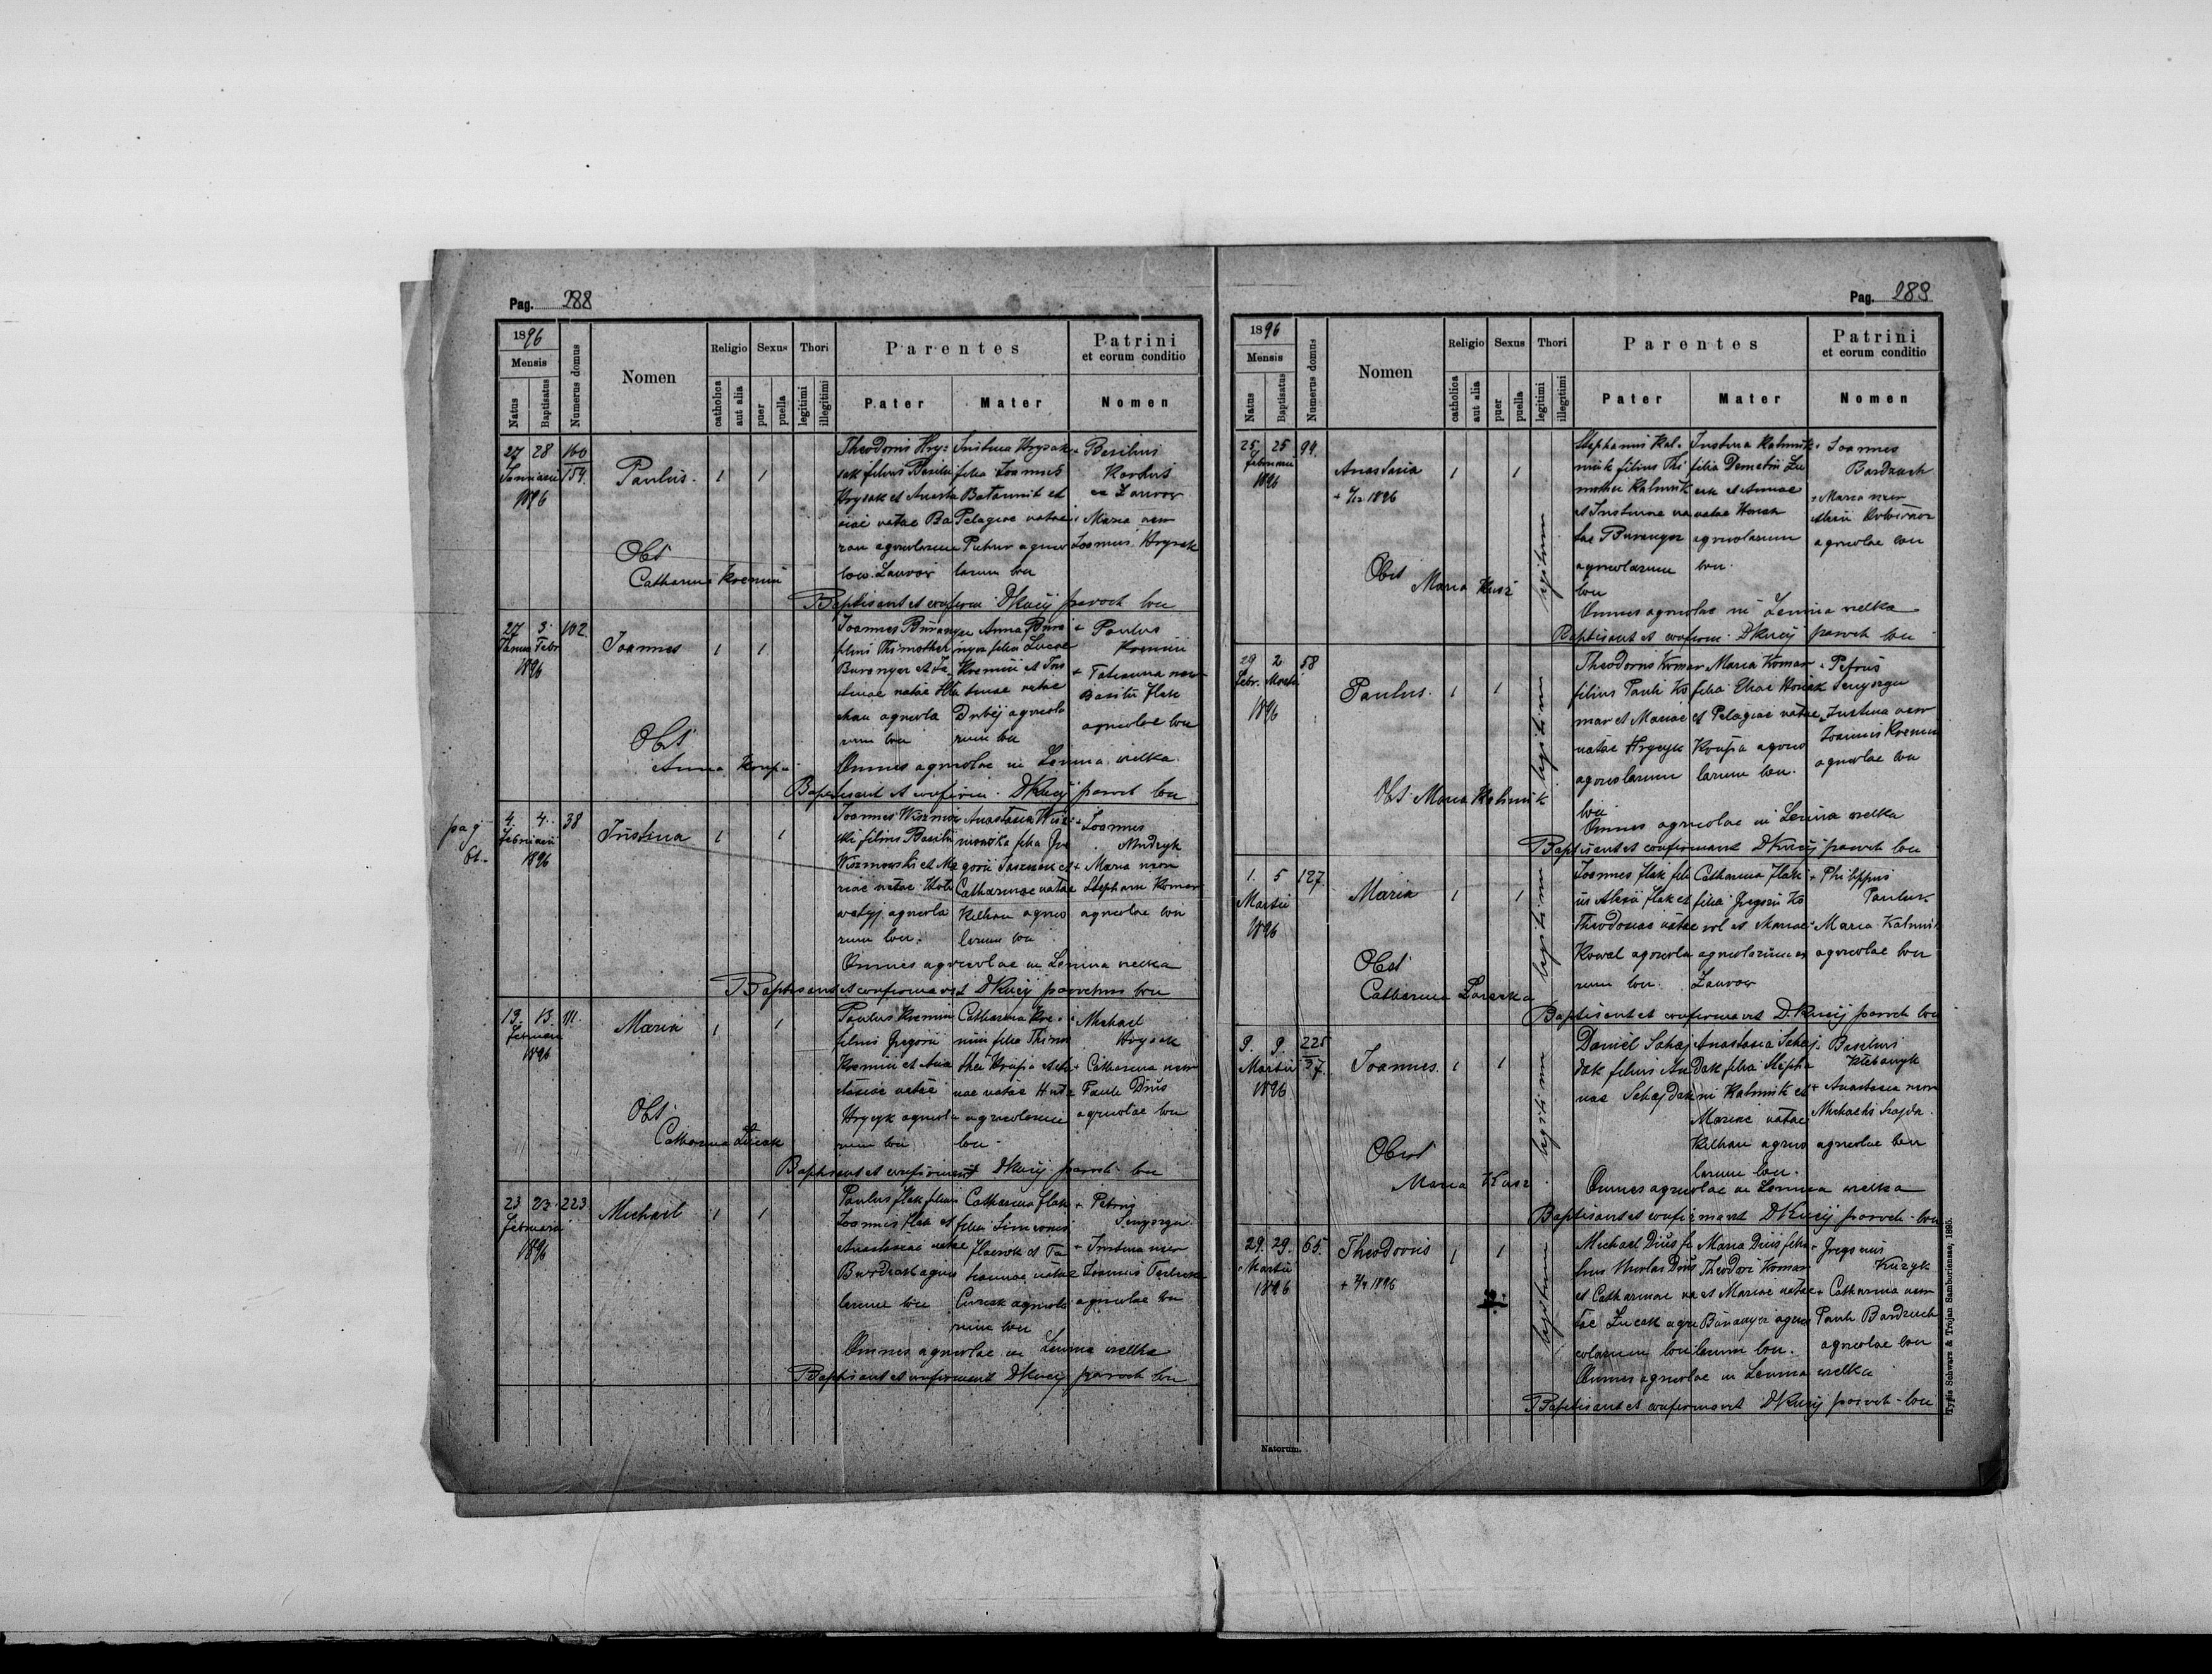 Pag. 288
1896
Mensis
Natus
Baptisatus
Numerus domus
Nomen
Religio
catholica
aut alia
Sexus
puer
puella
Thori
legitimi
illegitimi
Parentes
Pater
Mater
Patrini
et eorum conditio
Nomen
27 28 160
Januarii 154.
1896
Paulus.
1 1
Theodorus Hry-
sak filius Basilii
Hrysak et Anasta
siae natae Ba
ran agricolarum
Justina Hrysak
filia Joannis
et
Pelagiae natae
agrico
larum loci
+ Basilius
ex Lavrow
+ Maria uxor
Joannis Hrysak
Obst
Catharina Kremin
Baptisavit et confirm. DKucij paroch loci
27 3. 102
Januar Febr
1896
Joannes
1 1
Joannes Buranyer
filius Thimothei
Buranyer et Ju
stinae natae
agricola
rum loci
Anna Bura
nyer filia Lucae
Kremin et Jus
tinae natae
agricola
rum loci
+ Paulus
Kremin
+ Tatianna uxor
Basilii Flak
agricolae loci
Obst
Anna Krupa
Omnes agricolae in Lenina wielka
Baptisavit et confirm. DKucij paroch loci
pag
61.
4. 4. 38
Februarii
1896
Justina
1 1
Joannes
filius Basilii
et Ma
riae natae
agricola
rum loci.
Anastasia
filia Gre
gorii et
Catharinae natae
Kelhan agrico
larum loci
+ Joannes
Mudryk
+ Maria uxor
Stephani Komar
agricolae loci
Omnes agricolae in Lenina wielka
Baptisavit et confirmavit DKucij parochus loci
13. 13. 111.
Februarii
1896
Maria
1 1
Paulus Kremin
filius Gregorii
Kremin et Ana
stasiae natae
Hrycyk agricola
rum loci
Catharina Kre-
min filia Thimo
thei Krupa et
natae
agricolarum
loci-
+ Michael
Hrysak
+ Catharina uxor
Pauli Dius
agricolae loci
Obst
Catharina Lucak
Baptisavit et confirmavit DKucij paroch loci
23 23. 223
Februarii
1896
Michael
1 1
Paulus Flak filius
Joannis Flak et
Anastasiae natae
Bardzach agrico
larum loci
Catharina Flak
filia Simeonis
et Ta
tiannae natae
agricola
rum loci
+ Petrus
Senyszyn
+ Justina uxor
Joannis
agricolae loci
Omnes agricolae in Lenina wielka
Baptisavit et confirmavit DKucij paroch loci
Pag. 289
1896
Mensis
Natus
Baptisatus
Numerus domus
Nomen
Religio
catholica
aut alia
Sexus
puer
puella
Thori
legitimi
illegitimi
Parentes
Pater
Mater
Patrini
et eorum conditio
Nomen
25 25 94.
Februarii
1896
Anastasia
1896
1 1
legitimi
Stephanus Kal-
mik filius Thi
mothei Kalmik
et Justinae na
tae Buranyer
agricolarum
loci
Justina Kalmik
filia Demetrii Lu
cak et Annae
natae
agricolarum
loci.
+ Joannes
Bardzach
+ Maria uxor
agricolae loci
Obst
Maria Kusz
Omnes agricolae in Lenina wielka
Baptisavit et confirm. DKucij paroch loci
29 2 58
Febr. Martii
1896
Paulus.
1 1
legitimi
Theodorus Komar
filius Pauli Ko
mar et Mariae
natae Hrycyk
agricolarum
loci
Maria Komar
filia Eliae
et Pelagiae natae
Krupa agrico
larum loci.
+ Petrus
Senyszyn
+ Justina uxor
Joannis Kremin
agricolae loci
Obst Maria Kalmik
Omnes agricolae in Lenina wielka
Baptisavit et confirmavit DKucij paroch loci
1. 5 127.
Martii
1896
Maria
1 1
legitimi
Joannes Flak fili
us Alexii Flak et
Theodosiae natae
Kowal agricola
rum loci.
Catharina Flak
filia Gregorii Ko
wal et Mariae
agricolarum ex
Lavrow
+ Philippus
Pawluk
+ Maria Kalmik
agricolae loci
Obst
Catharina
Baptisavit et confirmavit DKucij paroch loci
9. 9. 225
Martii 37.
1896
Joannes.
1 1
legitimi
Daniel Sahaj
dak filius An
nae Sahajdak
Anastasia Sahaj
dak filia Stepha
ni Kalmik et
Mariae natae
Kelhan agrico
larum loci.
+ Basilius
Klebanyk
+ Anastasia uxor
Michaelis Szajda.
agricolae loci
Obst
Maria Kusz
Omnes agricolae in Lenina wielka
Baptisavit et confirmavit DKucij paroch loci
29. 29. 65.
Martii
1896
Theodorus
1896
1 1
legitimi
Michael Dius fi
lius Nicolai Dius
et Catharinae na
tae Lucak agri
colarum loci
Maria Dius filia
Theodori Komar
et Mariae natae
Buranyer agrico
larum loci.
+ Gregorius
Kuzyk
+ Catharina uxor
Pauli Bardzach
agricolae loci
Omnes agricolae in Lenina wielka
Baptisavit et confirmavit DKucij paroch loci
Natorum.
Typis Schwarz & Trojan Samboriensae, 1895.